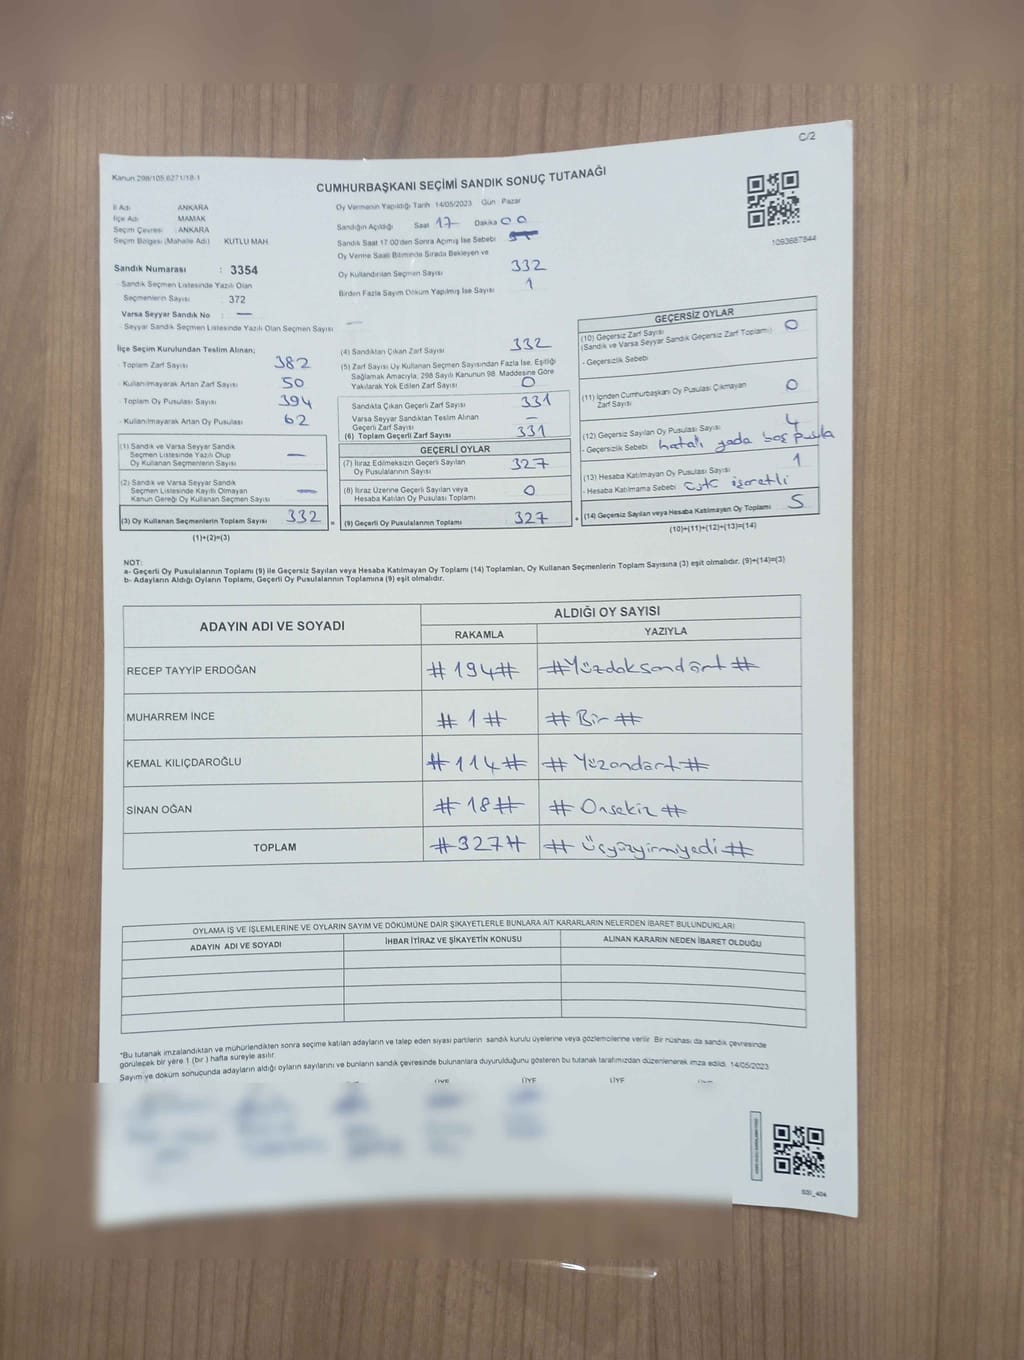 C/2
Kanun 298/105.6271/18-1
CUMHURBAŞKANI SEÇİMİ SANDIK SONUÇ TUTANAĞI
1093687844
İl Adı ANKARA
İlçe Adı MAMAK
Seçim Çevresi : ANKARA
Seçim Bölgesi (Mahalle Adı) KUTLU MAH.
Sandık Numarası : 3354
- Sandık Seçmen Listesinde Yazılı Olan
Seçmenlerin Sayısı : 372
Varsa Seyyar Sandık No : —
- Seyyar Sandık Seçmen Listesinde Yazılı Olan Seçmen Sayısı : —
Oy Vermenin Yapıldığı Tarih 14/05/2023 Gün Pazar
Sandığın Açıldığı Saat 17 Dakika 00
Sandık Saat 17:00'den Sonra Açımış İse Sebebi
Oy Verme Saati Bitiminde Sırada Bekleyen ve
Oy Kullandırılan Seçmen Sayısı 332
Birden Fazla Sayım Döküm Yapılmış İse Sayısı 1
İlçe Seçim Kurulundan Teslim Alınan;
- Toplam Zarf Sayısı : 382
- Kullanılmayarak Artan Zarf Sayısı : 50
- Toplam Oy Pusulası Sayısı : 394
- Kullanılmayarak Artan Oy Pusulası : 62
(1) Sandık ve Varsa Seyyar Sandık
Seçmen Listesinde Yazılı Olup
Oy Kullanan Seçmenlerin Sayısı —
(2) Sandık ve Varsa Seyyar Sandık
Seçmen Listesinde Kayıtlı Olmayan
Kanun Gereği Oy Kullanan Seçmen Sayısı —
(3) Oy Kullanan Seçmenlerin Toplam Sayısı 332 =
(1)+(2)=(3)
(4) Sandıktan Çıkan Zarf Sayısı 332
(5) Zarf Sayısı Oy Kullanan Seçmen Sayısından Fazla İse, Eşitliği
Sağlamak Amacıyla; 298 Sayılı Kanunun 98. Maddesine Göre
Yakılarak Yok Edilen Zarf Sayısı 0
Sandıkta Çıkan Geçerli Zarf Sayısı 331
Varsa Seyyar Sandıktan Teslim Alınan
Geçerli Zarf Sayısı —
(6) Toplam Geçerli Zarf Sayısı 331
GEÇERLİ OYLAR
(7) İtiraz Edilmeksizin Geçerli Sayılan
Oy Pusulalarının Sayısı 327
(8) İtiraz Üzerine Geçerli Sayılan veya
Hesaba Katılan Oy Pusulası Toplamı 0
(9) Geçerli Oy Pusulalarının Toplamı 327 +
GEÇERSİZ OYLAR
(10) Geçersiz Zarf Sayısı
(Sandık ve Varsa Seyyar Sandık Geçersiz Zarf Toplamı) 0
- Geçersizlik Sebebi
(11) İçinden Cumhurbaşkanı Oy Pusulası Çıkmayan
Zarf Sayısı 0
(12) Geçersiz Sayılan Oy Pusulası Sayısı 4
- Geçersizlik Sebebi hatalı yada boş pusula
(13) Hesaba Katılmayan Oy Pusulası Sayısı 1
- Hesaba Katılmama Sebebi çift işaretli
(14) Geçersiz Sayılan veya Hesaba Katılmayan Oy Toplamı 5
(10)+(11)+(12)+(13)=(14)
NOT:
a- Geçerli Oy Pusulalarının Toplamı (9) ile Geçersiz Sayılan veya Hesaba Katılmayan Oy Toplamı (14) Toplamları, Oy Kullanan Seçmenlerin Toplam Sayısına (3) eşit olmalıdır. (9)+(14)=(3)
b- Adayların Aldığı Oyların Toplamı, Geçerli Oy Pusulalarının Toplamına (9) eşit olmalıdır.
ADAYIN ADI VE SOYADI ALDIĞI OY SAYISI
RAKAMLA YAZIYLA
RECEP TAYYİP ERDOĞAN #194# #Yüzdoksandört#
MUHARREM İNCE #1# #Bir#
KEMAL KILIÇDAROĞLU #114# #Yüzondört#
SİNAN OĞAN #18# #Onsekiz#
TOPLAM #327# #Üçyüzyirmiyedi#
OYLAMA İŞ VE İŞLEMLERİNE VE OYLARIN SAYIM VE DÖKÜMÜNE DAİR ŞİKAYETLERLE BUNLARA AİT KARARLARIN NELERDEN İBARET BULUNDUKLARI
ADAYIN ADI VE SOYADI İHBAR İTİRAZ VE ŞİKAYETİN KONUSU ALINAN KARARIN NEDEN İBARET OLDUĞU
*Bu tutanak imzalandıktan ve mühürlendikten sonra seçime katılan adayların ve talep eden siyasi partilerin sandık kurulu üyelerine veya gözlemcilerine verilir. Bir nüshası da sandık çevresinde
görülecek bir yere 1 (bir) hafta süreyle asılır.
Sayım ve döküm sonucunda adayların aldığı oyların sayılarını ve bunların sandık çevresinde bulunanlara duyurulduğunu gösteren bu tutanak tarafımızdan düzenlenerek imza edildi. 14/05/2023
ÜYE ÜYE ÜYE